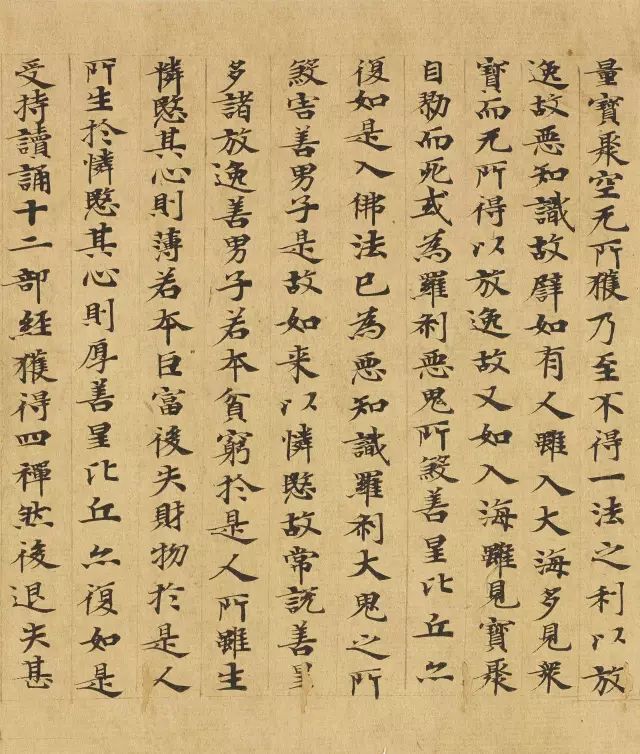 量寶聚空无所獲乃至不得一法之利以放
逸故惡知識故譬如有人雖入大海多見衆
寶而无所得以放逸故又如入海雖見寶聚
自勠而死或為羅刹惡鬼所煞善星比丘亦
復如是入佛法已為惡知識羅刹大鬼之所
煞害善男子是故如来以憐愍故常說善星
多諸放逸善男子若本貧窮於是人所雖生
憐愍其心則薄若本巨富後失財物於是人
所生於憐愍其心則厚善星比丘亦復如是
受持讀誦十二部經獲得四禪然後退失甚